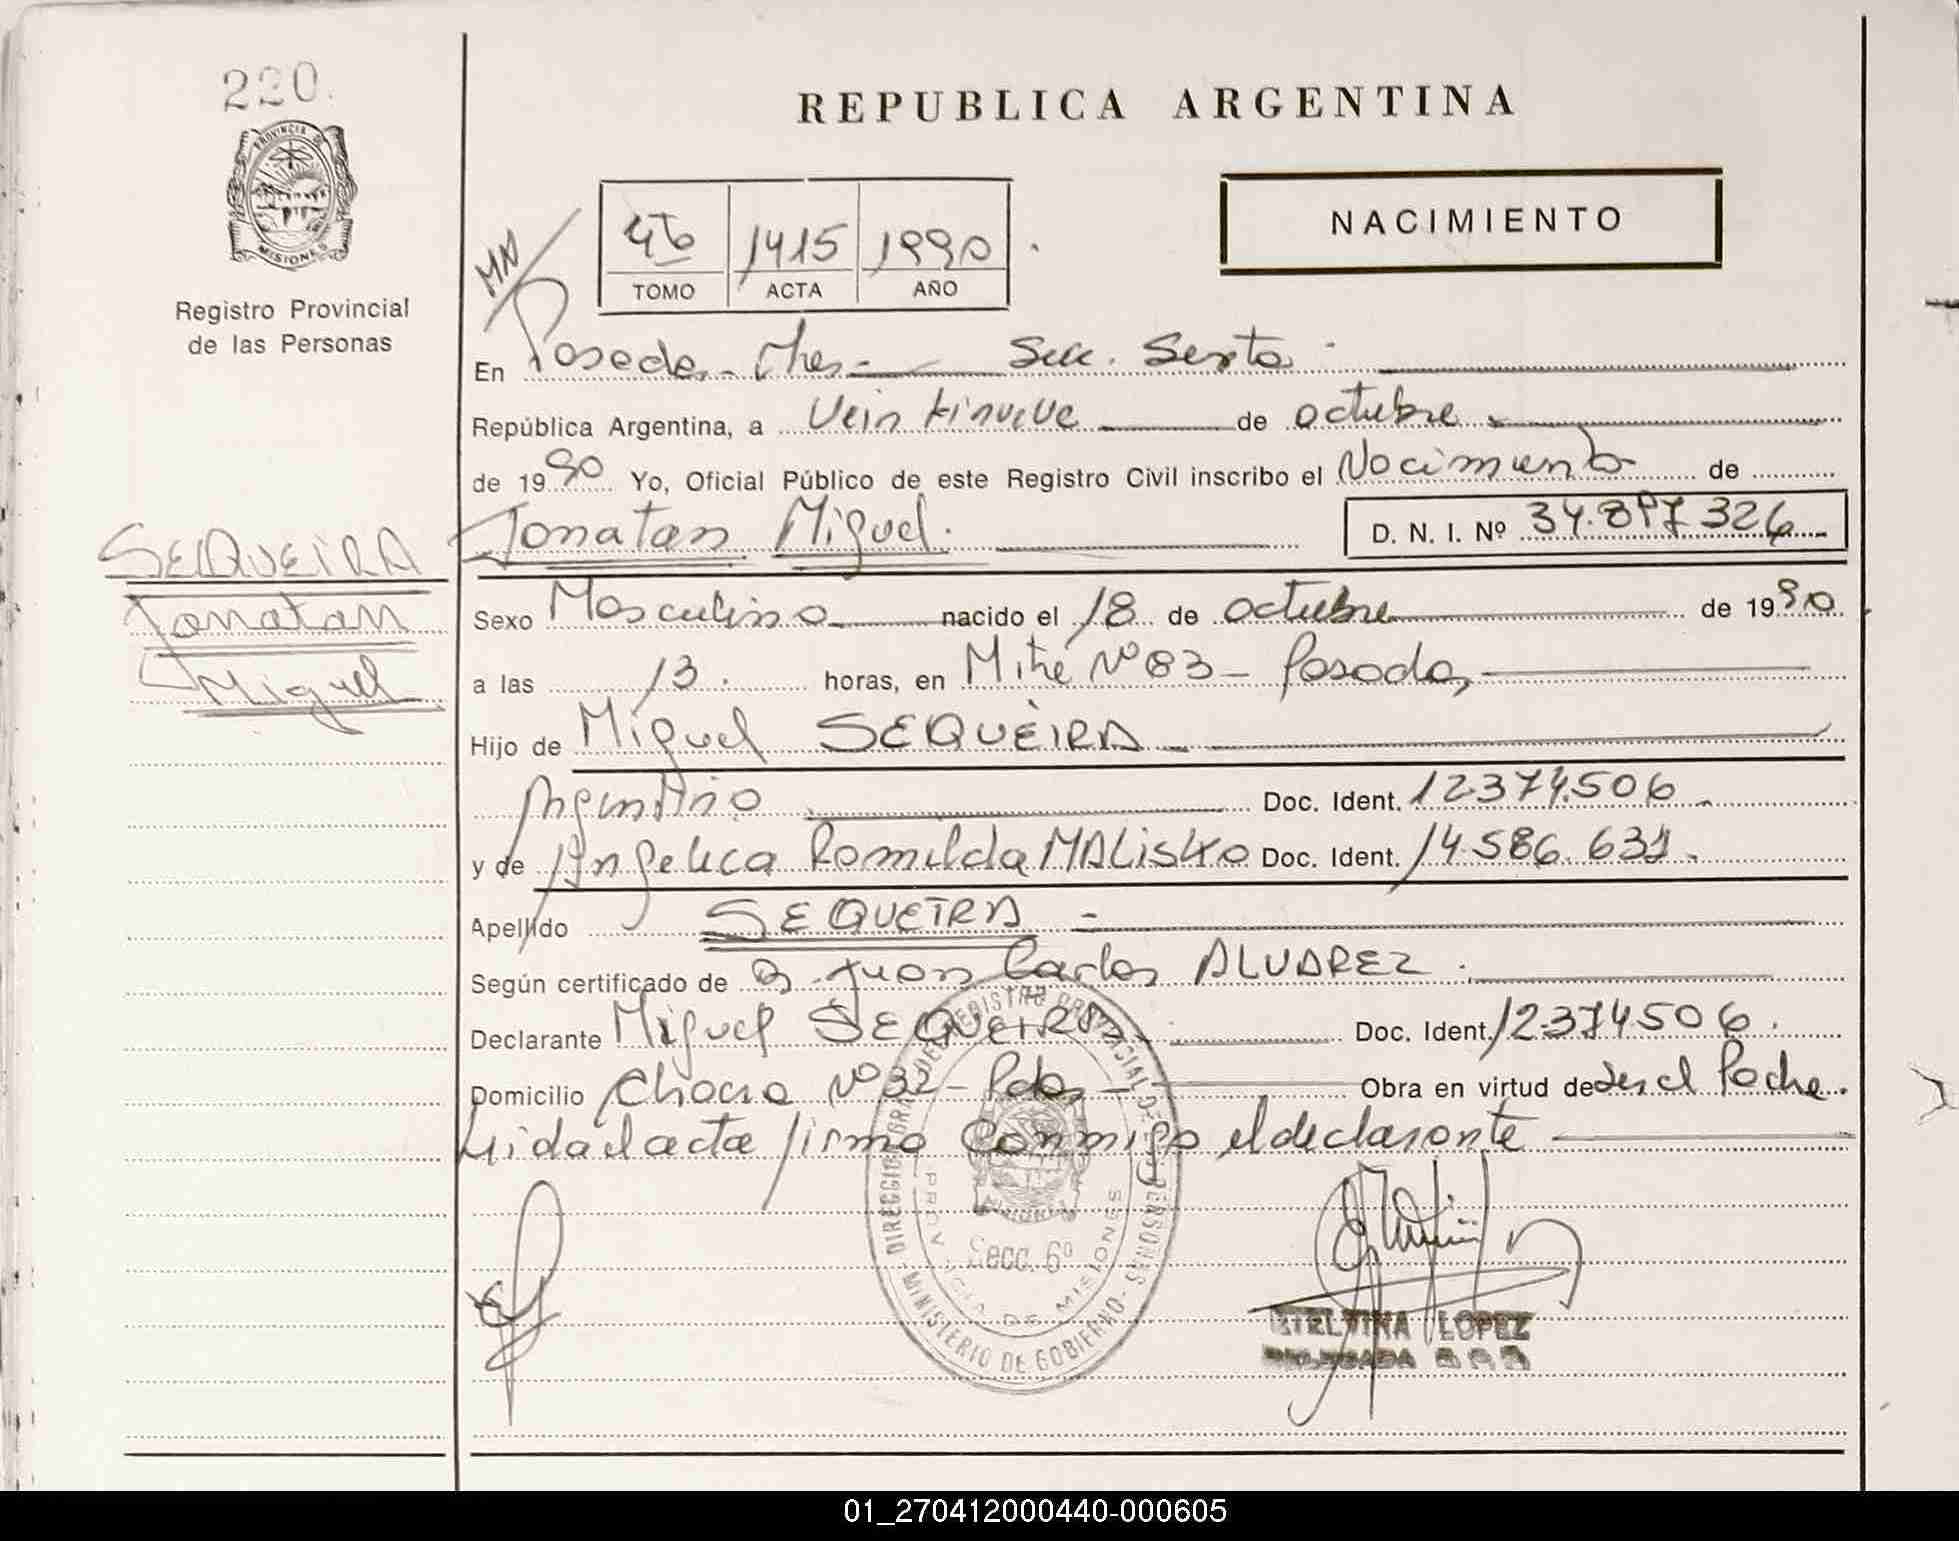 220.
PROVINCIA DE
MISIONES
Registro Provincial
de las Personas
REPUBLICA ARGENTINA
NACIMIENTO
1415 1990
TOMO ACTA AÑO
En Posadas - Mnes - Secc. Sexta
República Argentina, a Veintinueve de octubre
de 1990 Yo, Oficial Público de este Registro Civil inscribo el Nacimiento de
Jonatan Miguel. D. N. I. Nº 34.897 326
SEQUEIRA
Jonatan
Miguel
Sexo Masculino nacido el 18 de octubre de 1990
a las 13. horas, en Mitre Nº 83 - Posadas,
Hijo de Miguel SEQUEIRA
Argentino Doc. Ident. 12374.506
y de Angelica Romilda MALISKO Doc. Ident. 14.586.631.
Apellido SEQUEIRA
Según certificado de Dr. Juan Carlos ALVAREZ.
Declarante Miguel SEQUEIRA Doc. Ident. 12374506.
Domicilio Chacra Nº 32 - Pdas Obra en virtud de ser el Padre.
Leida el acta firma conmigo el declarante
DIRECCION GRAL DEL REGISTRO PROVINCIAL DE LAS PERSONAS - MINISTERIO DE GOBIERNO -
PROVINCIA DE MISIONES
Secc. 6º
ETELVINA LOPEZ
DELEGADA
01_270412000440-000605